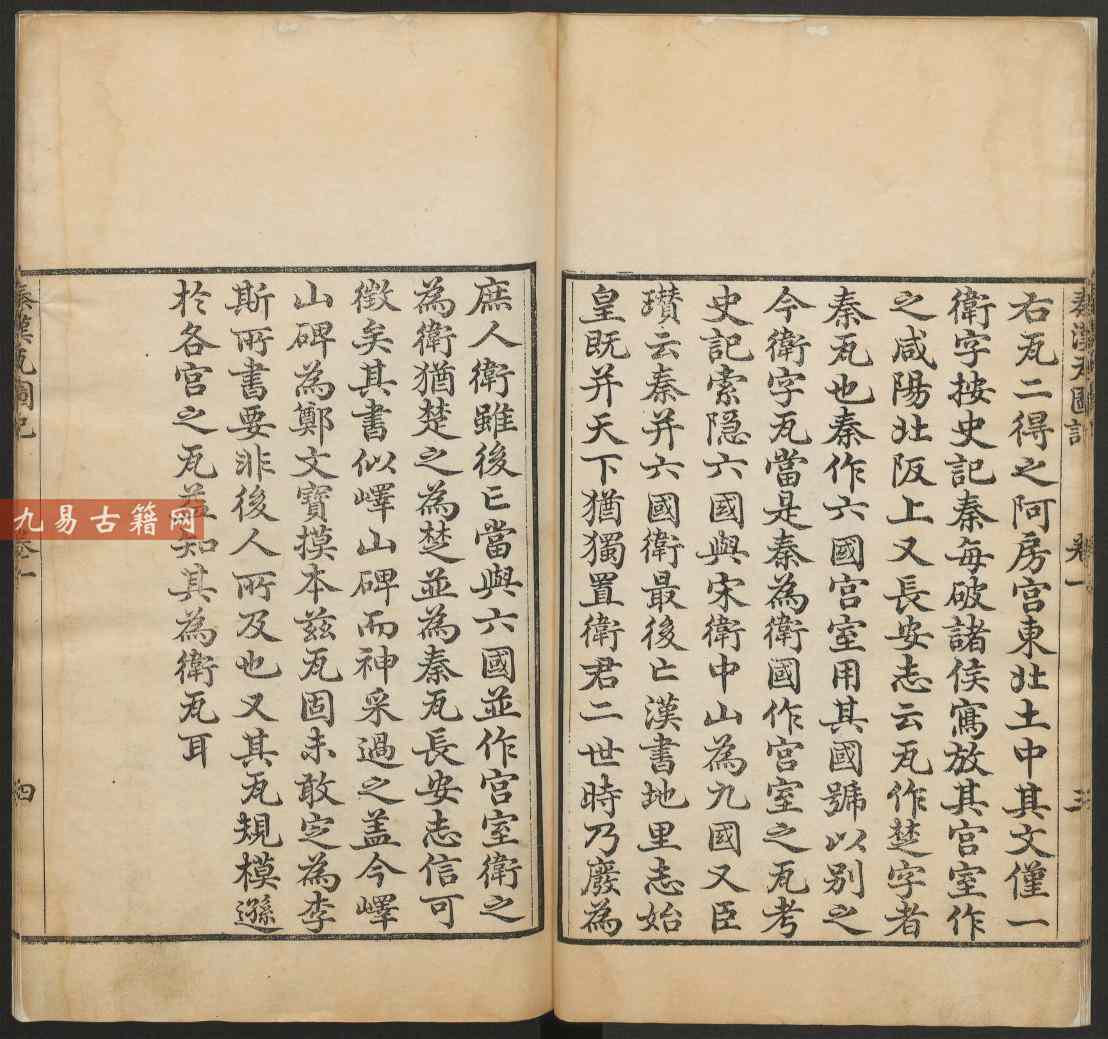 右瓦二得之阿房宮東北土中其文僅一
衛字按史記秦每破諸侯寫放其宮室作
之咸陽北阪上又長安志云瓦作楚字者
秦瓦也秦作六國宮室用其國號以別之
今衛字瓦當是秦為衛國作宮室之瓦考
史記索隐六國與宋衛中山為九國又臣
瓚云秦并六國衛最後亡漢書地里志始
皇既并天下猶獨置衛君二世時乃廢為
庶人衛雖後亡當與六國並作宮室衛之
為衛猶楚之為楚並為秦瓦長安志信可
徵矣其書似嶧山碑而神采過之盖今嶧
山碑為鄭文寶摸本兹瓦固未敢定為李
斯所書要非後人所及也又其瓦規模遜
於各宮之瓦益知其為衛瓦耳
秦漢瓦圖記 卷一 四
九易古籍网